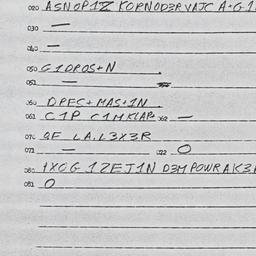 020 ASNOP1Z KOPNOD3RVAJC A+G1
030 —
040 —
050 G1DROS+N
051 —
060 DPEC+MAS+1N
061 C1P C1MKLAP2 062 —
070 QF LA.L3X3R
071 — 072 O
080 1XOG 1ZEJ1N D3MPOWRAK3
081 O